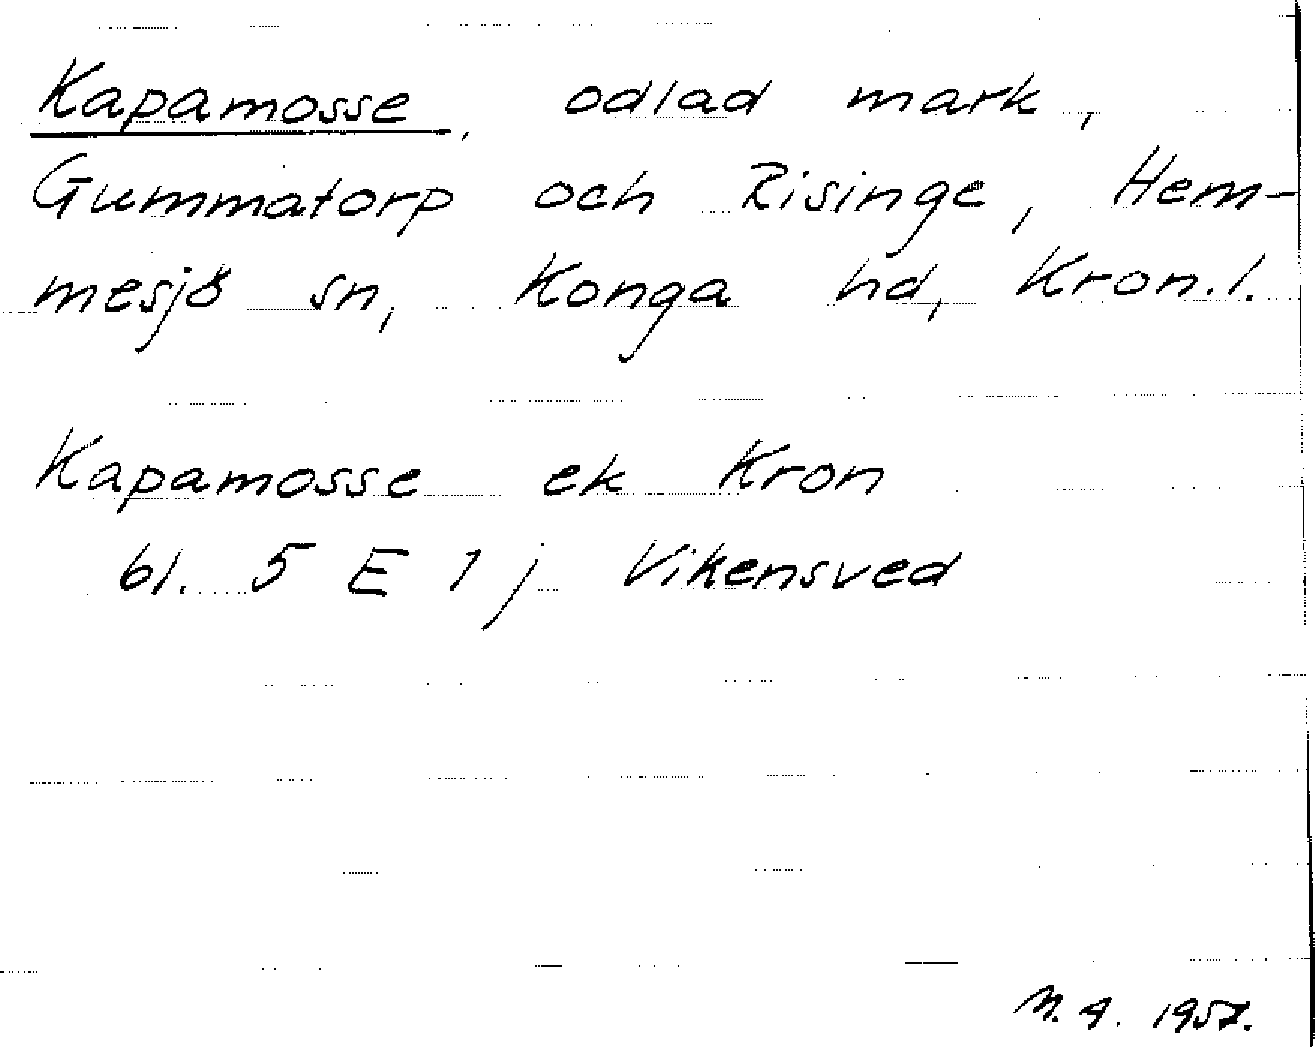 Kapamosse, odlad mark,
Gummatorp och Risinge, Hem-
mesjö sn, Konga hd, Kron.l.
Kapamosse ek Kron
bl. 5 E 1 j Vikensved
1957.